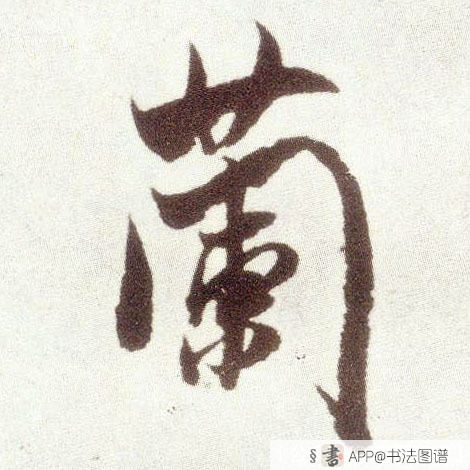 蘭
§書 APP@书法图谱